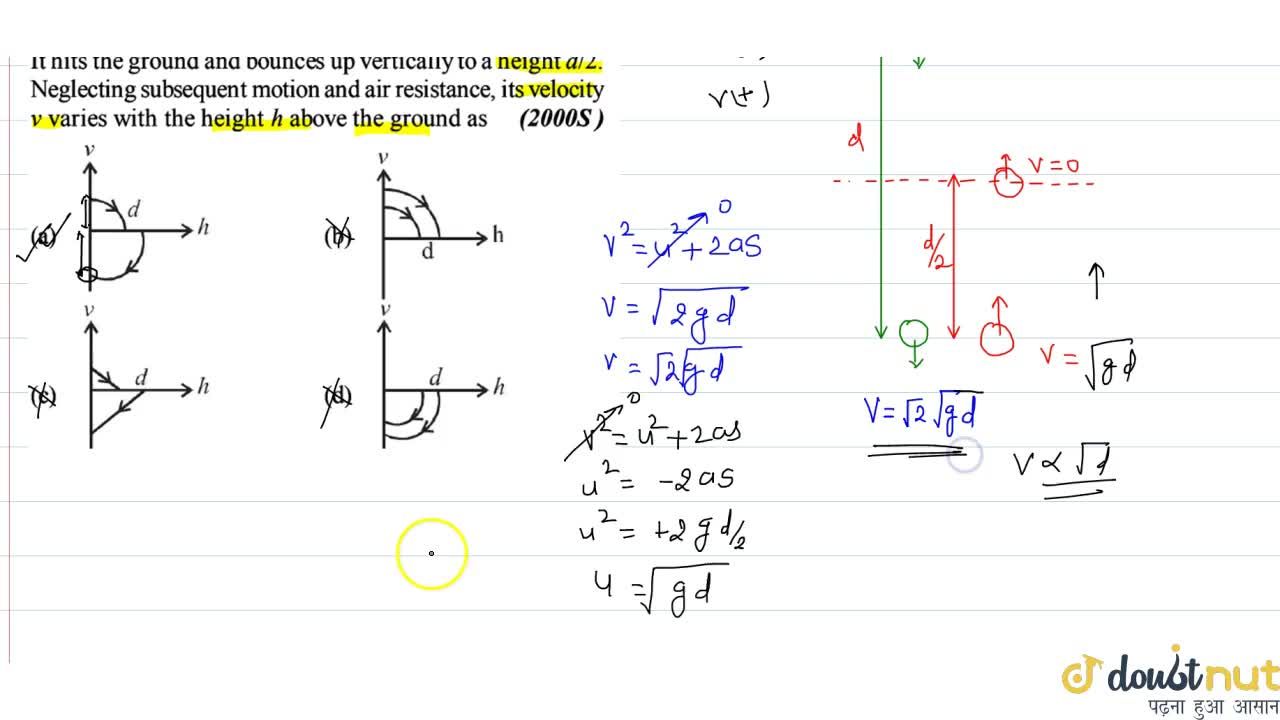 It hits the ground and bounces up vertically to a height d/2.
Neglecting subsequent motion and air resistance, its velocity
v varies with the height h above the ground as (2000S)
v
(a)
d
h
v
(b)
d
h
v
(c)
d
h
v
(d)
d
h
v(+)
d
d/2
v=0
v² = u² + 2as
0
v = √2gd
v = √2√gd
v² = u² + 2as
0
u² = -2as
u² = +2gd/2
u = √gd
v = √gd
v = √2√gd
v ∝ √d
doubtnut
पढ़ना हुआ आसान